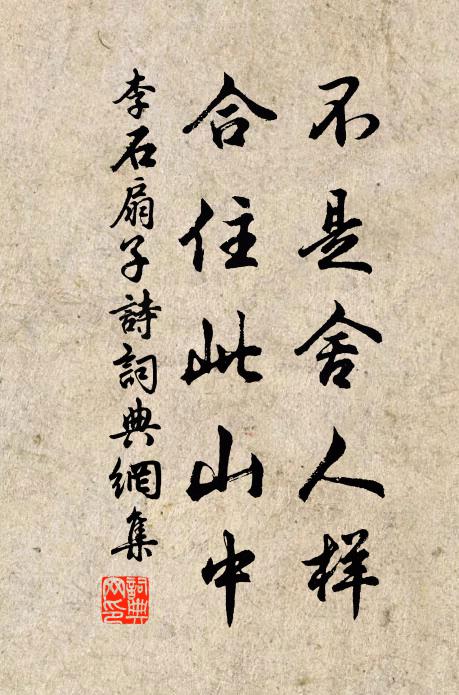 不是舍人样
合住此山中
李石扇子詩詞典網集
詞典網印